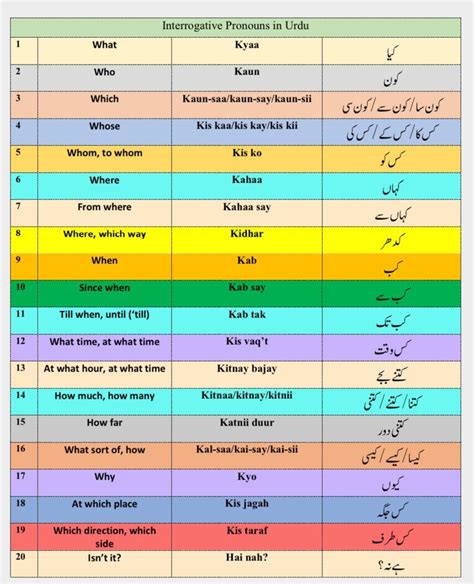 Interrogative Pronouns in Urdu
1 What Kyaa کیا
2 Who Kaun کون
3 Which Kaun-saa/kaun-say/kaun-sii کون سا/کون سے/کون سی
4 Whose Kis kaa/kis kay/kis kii کس کا/کس کے/کس کی
5 Whom, to whom Kis ko کس کو
6 Where Kahaa کہاں
7 From where Kahaa say کہاں سے
8 Where, which way Kidhar کدھر
9 When Kab کب
10 Since when Kab say کب سے
11 Till when, until (‘till) Kab tak کب تک
12 What time, at what time Kis vaq’t کس وقت
13 At what hour, at what time Kitnay bajay کتنے بجے
14 How much, how many Kitnaa/kitnay/kitnii کتنا/کتنے/کتنی
15 How far Katnii duur کتنی دور
16 What sort of, how Kal-saa/kai-say/kai-sii کیسا/کیسے/کیسی
17 Why Kyo کیوں
18 At which place Kis jagah کس جگہ
19 Which direction, which side Kis taraf کس طرف
20 Isn’t it? Hai nah? ہے نہ؟